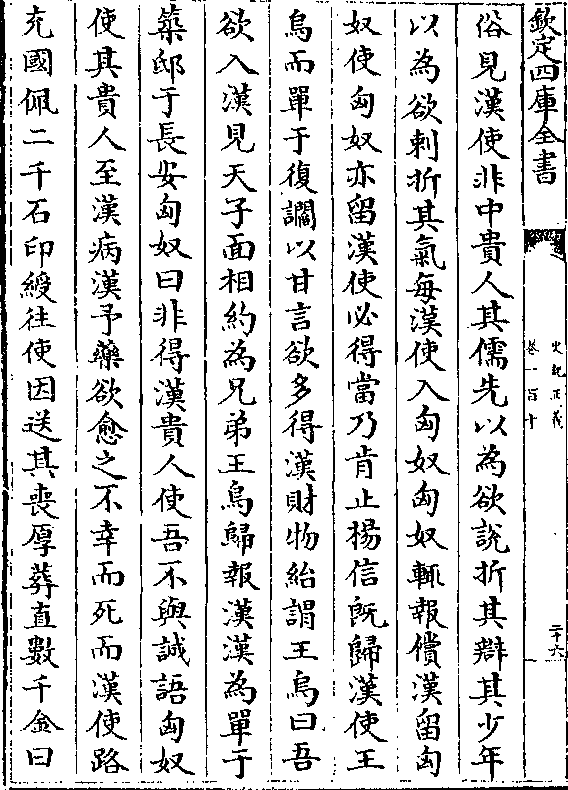 欽定四庫全書
史記正義
卷一百十
二十六
俗見漢使非中貴人其儒先以為欲說折其辯其少年
以為欲刺折其氣每漢使入匈奴匈奴輒報償漢留匈
奴使匈奴亦留漢使必得當乃肯止楊信旣歸漢使王
烏而單于復讇以甘言欲多得漢財物紿謂王烏曰吾
欲入漢見天子面相約為兄弟王烏歸報漢漢為單于
築邸于長安匈奴曰非得漢貴人使吾不與誠語匈奴
使其貴人至漢病漢予藥欲愈之不幸而死而漢使路
充國佩二千石印綬往使因送其喪厚葬直數千金曰